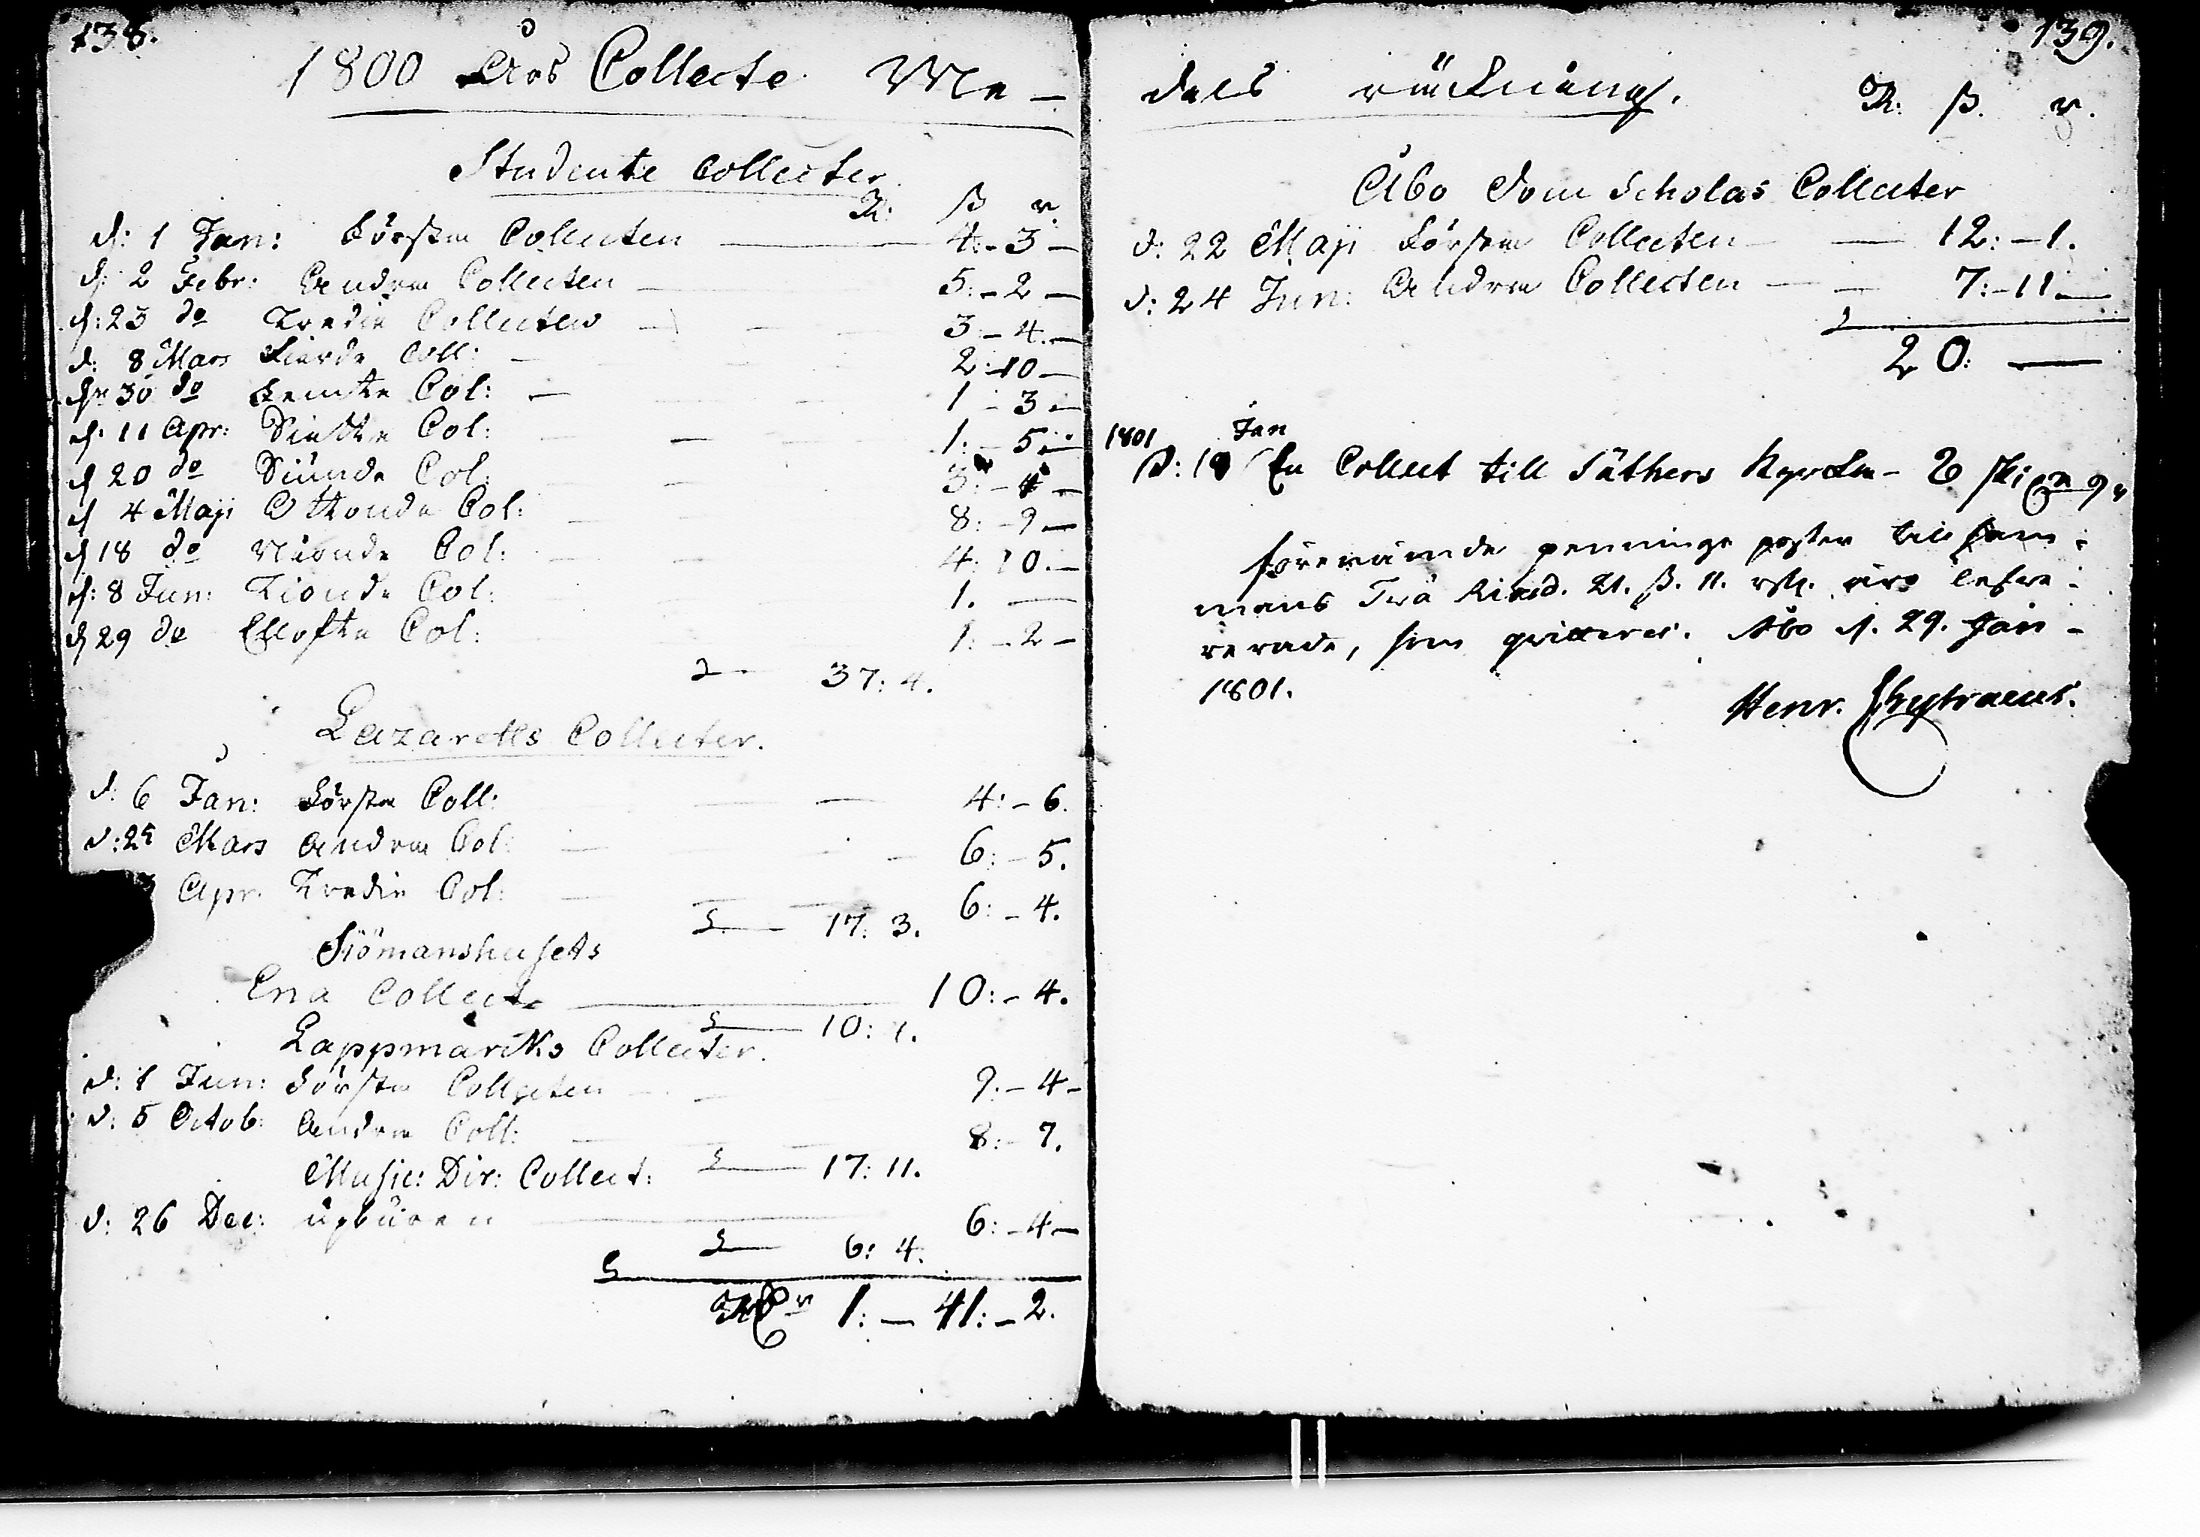 138.
1800 Års Collecte Me-
Studente Collecter
R: ß r.
d: 1 Jan: Första Collecten 4:-3-
d: 2 Febr: Andra Collecten 5:-2-
d: 23 do Tredie Collecten 3:-4.-
d: 8 Mars Fierde Coll: 2:-10-
dn 30 do Femte Col: 1-3-
d. 11 Apr: Siette Col: 1:-5-
d 20 do Siunde Col: 3:-4-
d 4 Maji Ottonde Col: 8:-9-
d 18 do Nionde Col: 4:10.-
d: 8 Jun: Tionde Col: 1.-
d 29 do Ellofte Col: 1:-2-
S 37:4.
Lazaretts Collecter.
d: 6 Jan: Första Coll: 4:-6.
d: 25 Mars Andra Col: 6:-5.
Apr. Tredie Col: 6:-4.
S 17:3.
Siömanshusets
Ena Collect 10:-4.
S 10:4.
Lappmarks Collecter.
d: 1 Jun: Första Collecten 9:-4-
d: 5 Octob: Andra Coll: 8:-7.
S 17:11.
Music: Dir: Collect:
d: 26 Dec: upburen 6:-4-
S 6:4.
S
1:-41:-2.
139.
dels räckning. R: ß. r.
Åbo Dom Scholas Collecter
d: 22 Maji Första Collecten 12:-1.
d: 24 Jun: Andra Collecten 7:-11-
S
20:-
1801 Jan
D: 18 En Collect till Säthers Kyrka-
förenämde penninge poster tilsam-
mans Två Riksd. 21. ß. 11. rst. äro lefve-
rerade, som qvitteras. Åbo d. 29. Jan-
1801.
Henr.